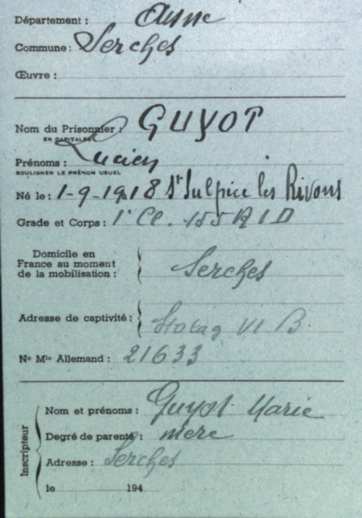 Département : Aisne
Commune : Serches
Œuvre :
Nom du Prisonnier : GUYOT
EN CAPITALES
Prénoms : Lucien
SOULIGNER LE PRÉNOM USUEL
Né le : 1-9-1918 St Sulpice les Rivons
Grade et Corps : 1e Cl. 155 R I D
Domicile en
France au moment
de la mobilisation : Serches
Adresse de captivité : Stalag VI B
No Mle Allemand : 21633
Inscripteur
Nom et prénoms : Guyot Marie
Degré de parenté : mère
Adresse : Serches
le 194